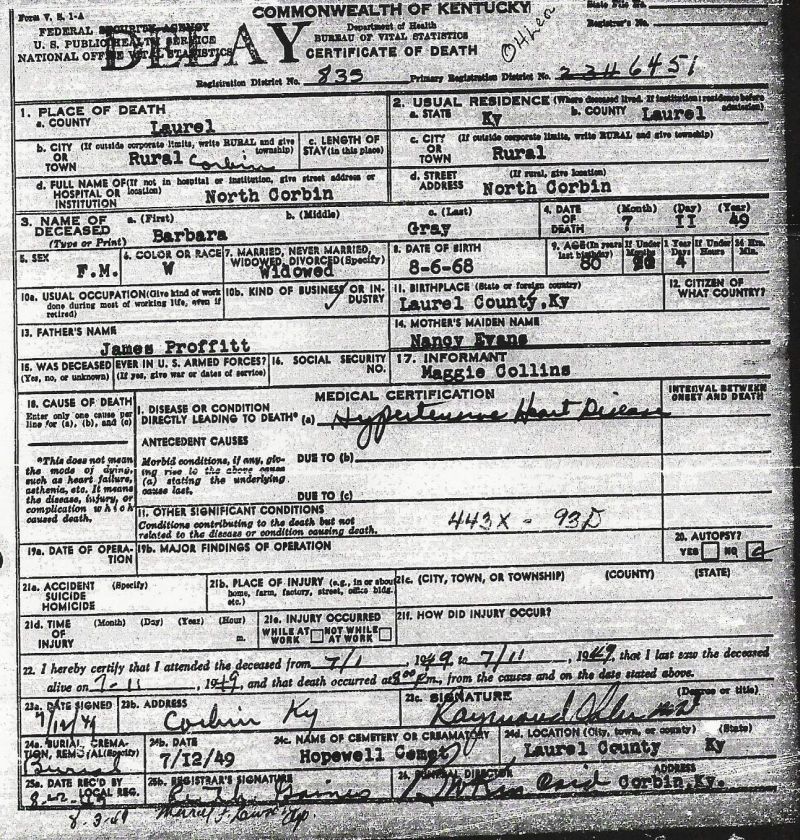 Form V. S. 1-A
COMMONWEALTH OF KENTUCKY
State File No.
FEDERAL SECURITY AGENCY
U. S. PUBLIC HEALTH SERVICE
NATIONAL OFFICE VITAL STATISTICS
DELAY
Department of Health
BUREAU OF VITAL STATISTICS
CERTIFICATE OF DEATH
Registrar's No.
Registration District No. 835 Primary Registration District No. 6451
1. PLACE OF DEATH
a. COUNTY Laurel
2. USUAL RESIDENCE (Where deceased lived. If institution: residence before admission)
a. STATE Ky b. COUNTY Laurel
b. CITY OR TOWN (If outside corporate limits, write RURAL and give township) Rural Corbin
c. LENGTH OF STAY (in this place)
c. CITY OR TOWN (If outside corporate limits, write RURAL and give township) Rural
d. FULL NAME OF HOSPITAL OR INSTITUTION (If not in hospital or institution, give street address or location) North Corbin
d. STREET ADDRESS (If rural, give location) North Corbin
3. NAME OF DECEASED (Type or Print)
a. (First) Barbara b. (Middle) c. (Last) Gray
4. DATE OF DEATH (Month) (Day) (Year) 7 II 49
5. SEX F.M.
6. COLOR OR RACE W
7. MARRIED, NEVER MARRIED, WIDOWED, DIVORCED (Specify) Widowed
8. DATE OF BIRTH 8-6-68
9. AGE (In years last birthday) 80 If Under 1 Year Months Days 4 If Under 24 Hrs. Hours Min.
10a. USUAL OCCUPATION (Give kind of work done during most of working life, even if retired)
10b. KIND OF BUSINESS OR INDUSTRY
11. BIRTHPLACE (State or foreign country) Laurel County, Ky
12. CITIZEN OF WHAT COUNTRY?
13. FATHER'S NAME James Proffitt
14. MOTHER'S MAIDEN NAME Nancy Evans
15. WAS DECEASED EVER IN U. S. ARMED FORCES? (Yes, no, or unknown) (If yes, give war or dates of service)
16. SOCIAL SECURITY NO.
17. INFORMANT Maggie Collins
18. CAUSE OF DEATH
Enter only one cause per line for (a), (b), and (c)
MEDICAL CERTIFICATION
INTERVAL BETWEEN ONSET AND DEATH
I. DISEASE OR CONDITION DIRECTLY LEADING TO DEATH* (a) Hypertensive Heart Disease
ANTECEDENT CAUSES
*This does not mean the mode of dying, such as heart failure, asthenia, etc. It means the disease, injury, or complication which caused death.
Morbid conditions, if any, giving rise to the above cause (a) stating the underlying cause last.
DUE TO (b)
DUE TO (c)
II. OTHER SIGNIFICANT CONDITIONS
Conditions contributing to the death but not related to the disease or condition causing death.
443X - 93D
19a. DATE OF OPERATION
19b. MAJOR FINDINGS OF OPERATION
20. AUTOPSY? YES NO
21a. ACCIDENT SUICIDE HOMICIDE (Specify)
21b. PLACE OF INJURY (e.g., in or about home, farm, factory, street, office bldg. etc.)
21c. (CITY, TOWN, OR TOWNSHIP) (COUNTY) (STATE)
21d. TIME OF INJURY (Month) (Day) (Year) (Hour) m.
21e. INJURY OCCURRED WHILE AT WORK NOT WHILE AT WORK
21f. HOW DID INJURY OCCUR?
22. I hereby certify that I attended the deceased from 7/1, 1949 to 7/11, 1949, that I last saw the deceased
alive on 7-11, 1949, and that death occurred at 8:00 P.m., from the causes and on the date stated above.
23a. DATE SIGNED 7/12/49
23b. ADDRESS Corbin Ky
23c. SIGNATURE Raymond (Degree or title)
24a. BURIAL, CREMATION, REMOVAL (Specify) Burial
24b. DATE 7/12/49
24c. NAME OF CEMETERY OR CREAMATORY Hopewell Cemet
24d. LOCATION (City, town, or county) (State) Laurel County Ky
25a. DATE REC'D BY LOCAL REG.
25b. REGISTRAR'S SIGNATURE Gaines
26. FUNERAL DIRECTOR ADDRESS Corbin, Ky.